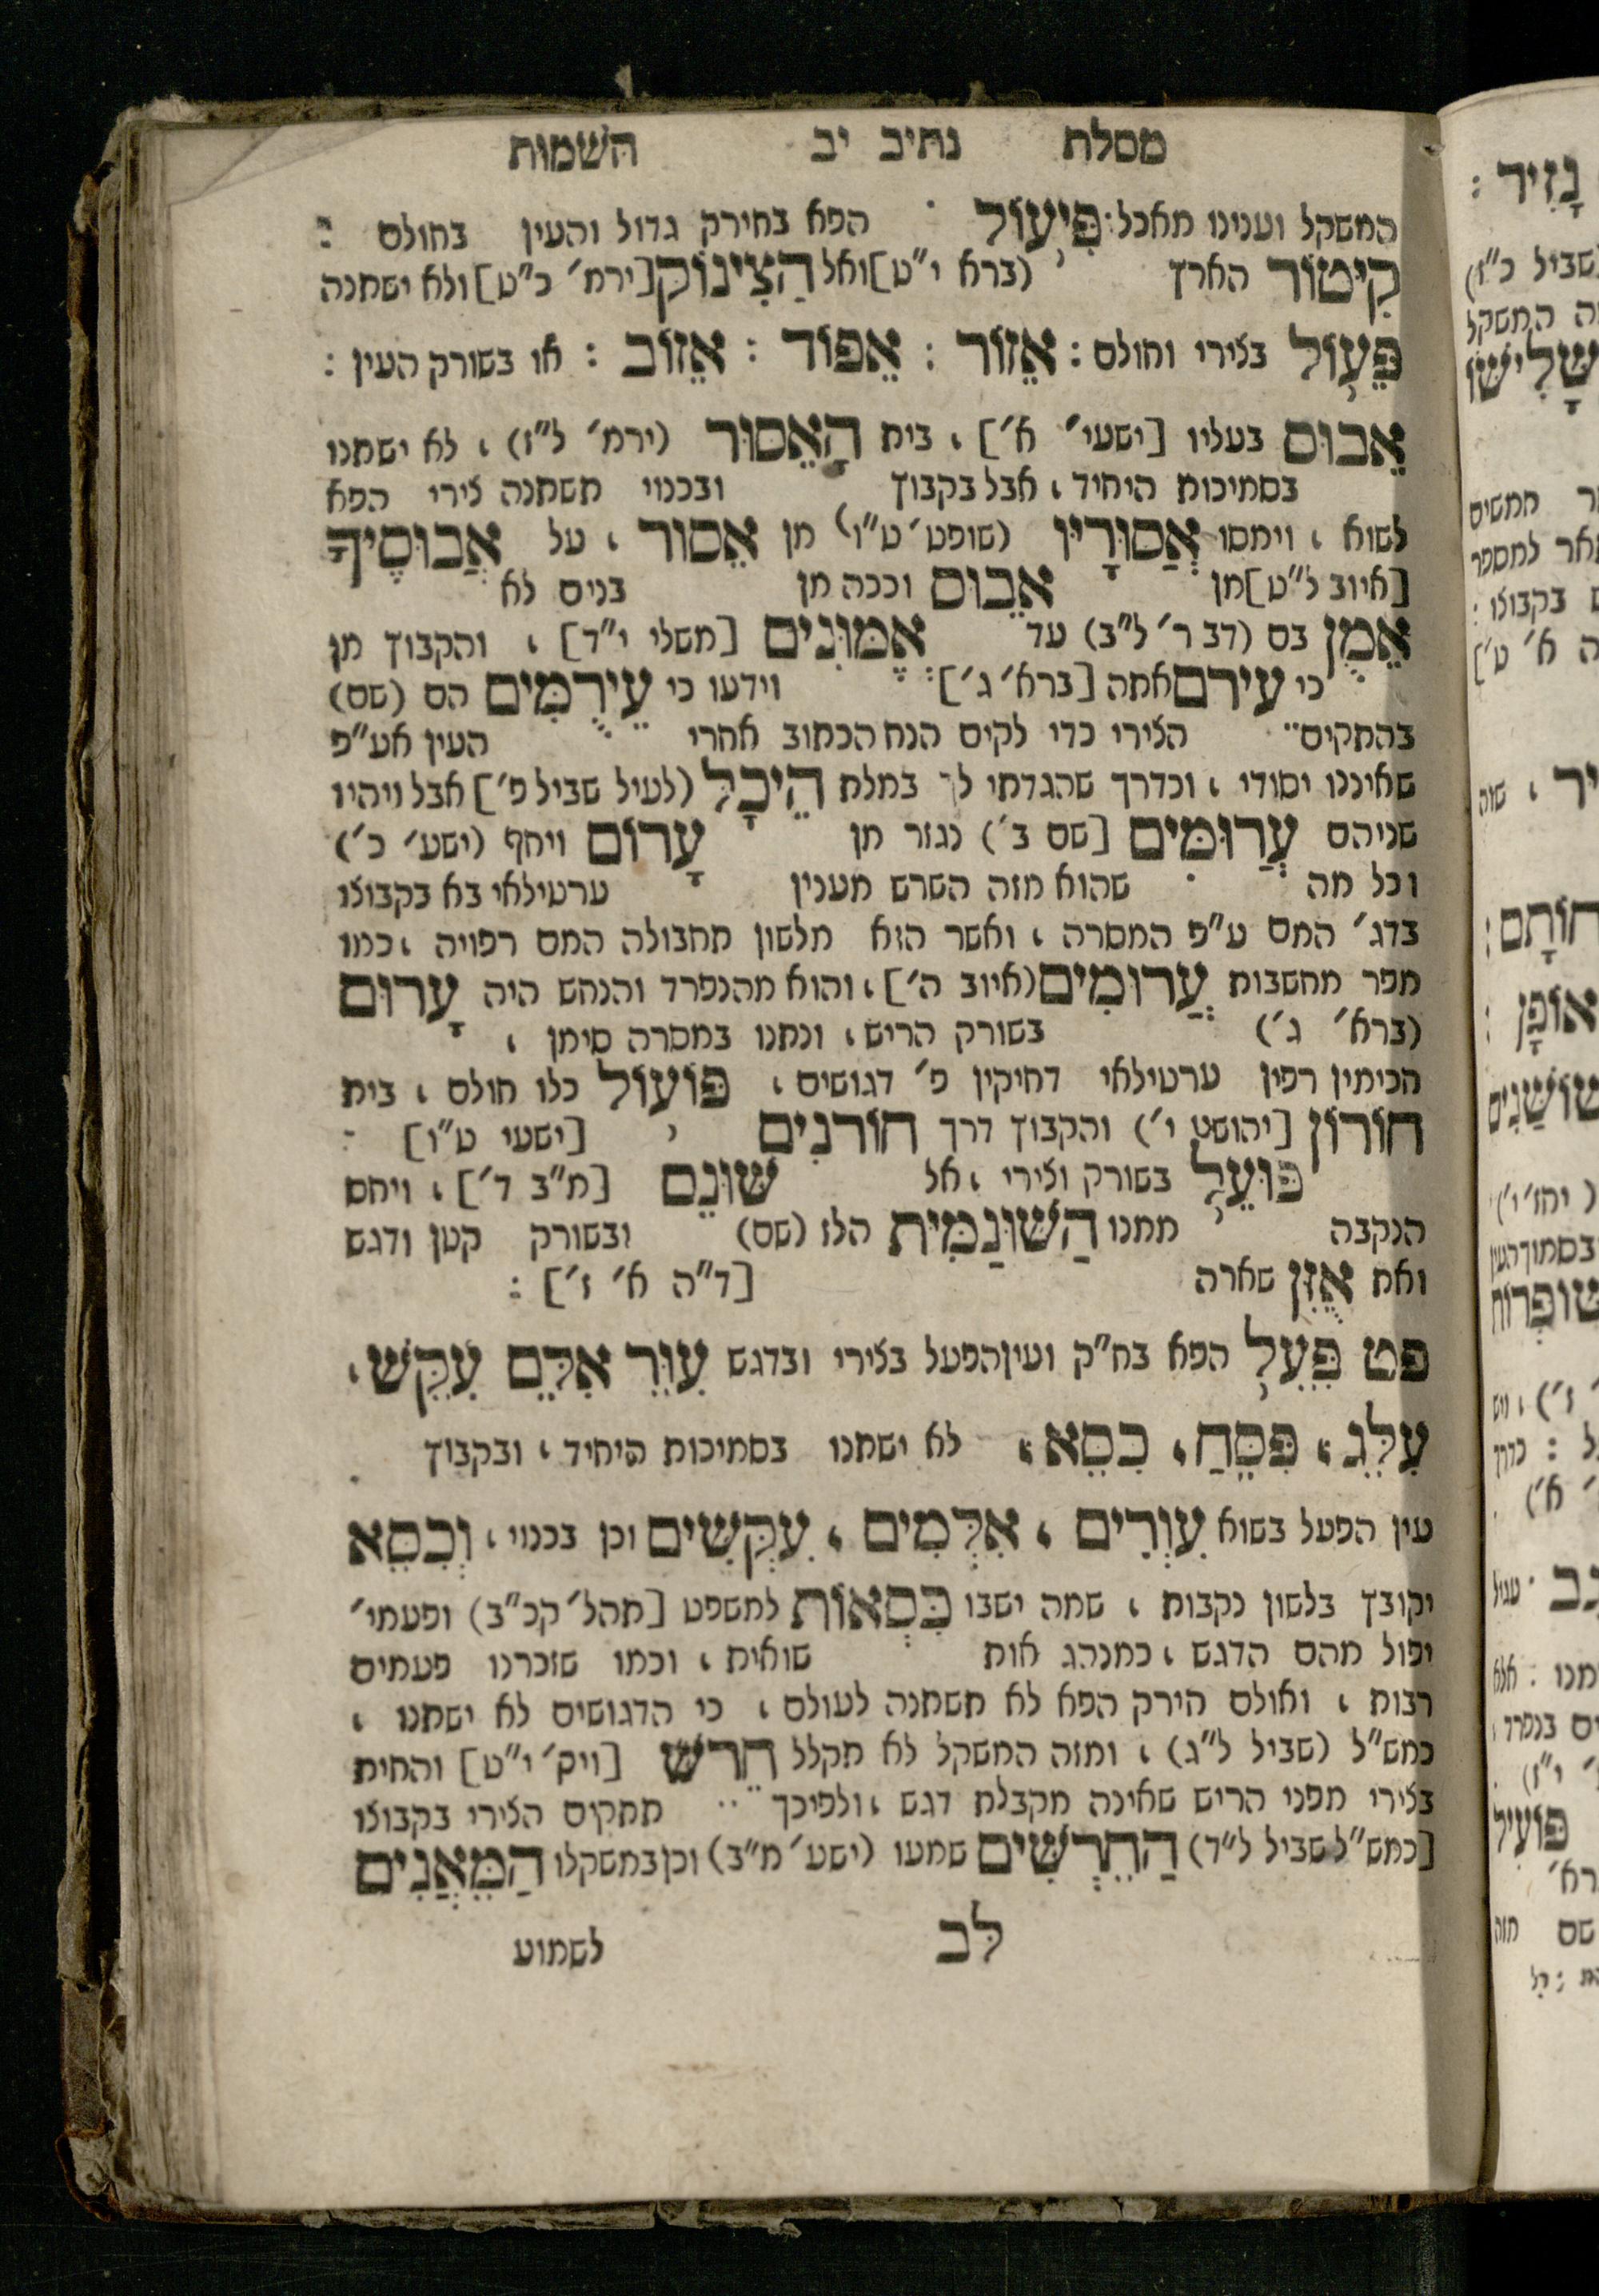 מסלת נתיב יב השמות
המשקל וענינו מאכל: פִּיעוֹל הפא בחירק גדול והעין בחולם :
קִיטוֹר הארץ (ברא י"ט] ואל הַצִינוֹק [ירמ' כ"ט] ולא ישתנה
פֵּעוֹל בצירי וחולם : אֵזוֹר : אֵפוֹד : אֵזוֹב : או בשורק העין :
אֵבוּס בעליו [ישעי' א'] , בית הָאֵסוּר (ירמ' ל"ז) , לא ישתנו
בסמיכות היחיד , אבל בקבוץ ובכנוי תשתנה צירי הפא
לשוא , וימסו אֲסוּרָיו (שופט' ט"ו) מן אֵסוּר , על אֲבוּסֶיךָ
[איוב ל"ט] מן אֵבוּס וככה מן בנים לא
אֵמֻן בם (דבר' ל"ב) עד אֱמוּנִים [משלי י"ד] , והקבוץ מן
כי עירם אתה [ברא' ג'] וידעו כי עֵירֻמִּים הם (שם)
בהתקים הצירי כדי לקים הנח הכתוב אחרי העין אע"פ
שאיננו יסודי , וכדרך שהגדתי לך במלת הֵיכָל (לעיל שביל פ'] אבל ויהיו
שניהם עֲרוּמִּים [שם ב') נגזר מן עָרוֹם ויחף (ישע' כ')
וכל מה שהוא מזה השרש מענין ערטילאי בא בקבוצו
בדג' המם ע"פ המסרה , ואשר הוא מלשון תחבולה המם רפויה , כמו
מפר מחשבות עֲרוּמִים (איוב ה'] , והוא מהנפרד והנחש היה עָרוּם
(ברא' ג') בשורק הריש , ונתנו במסרה סימן ,
חכימין רפין ערטילאי דחיקין פ' דגושים , פּוֹעוֹל כלו חולם , בית
חוֹרוֹן [יהושט י') והקבוץ דרך חוֹרנִים [ישעי ט"ו] :
פּוּעֵל בשורק וצירי , אל שׁוּנֵם [מ"ב ד'] , ויחס
הנקבה ממנו הַשׁוּנַמִּית הלז (שם) ובשורק קטן ודגש
ואת אֻזֵּן שארה [ד"ה א' ז'] :
פט פִּעֵל הפא בח"ק ועין הפעל בצירי ובדגש עִוֵּר אִלֵּם עִקֵּשׁ ,
עִלֵּג , פִּסֵּחַ , כִּסֵּא , לא ישתנו בסמיכות היחיד , ובקבוץ
עין הפעל בשוא עִוְרִים , אִלְּמִים , עִקְּשִׁים וכן בכנוי , וְכִסֵּא
יקובץ בלשון נקבות , שמה ישבו כִּסְאוֹת למשפט [תהל' קכ"ב) ופעמי'
יפול מהם הדגש , כמנהג אות שואית , וכמו שזכרנו פעמים
רבות , ואולם חירק הפא לא תשתנה לעולם , כי הדגושים לא ישתנו ,
כמש"ל (שביל ל"ג) , ומזה המשקל לא תקלל חֵרֵשׁ [ויק' י"ט] והחית
בצירי מפני הריש שאינה מקבלת דגש , ולפיכך תתקים הצירי בקבוצו
[כמש"ל שביל ל"ד) הַחֵרְשִׁים שמעו (ישע' מ"ב) וכן במשקלו הַמֵּאֲנִים
לב לשמוע